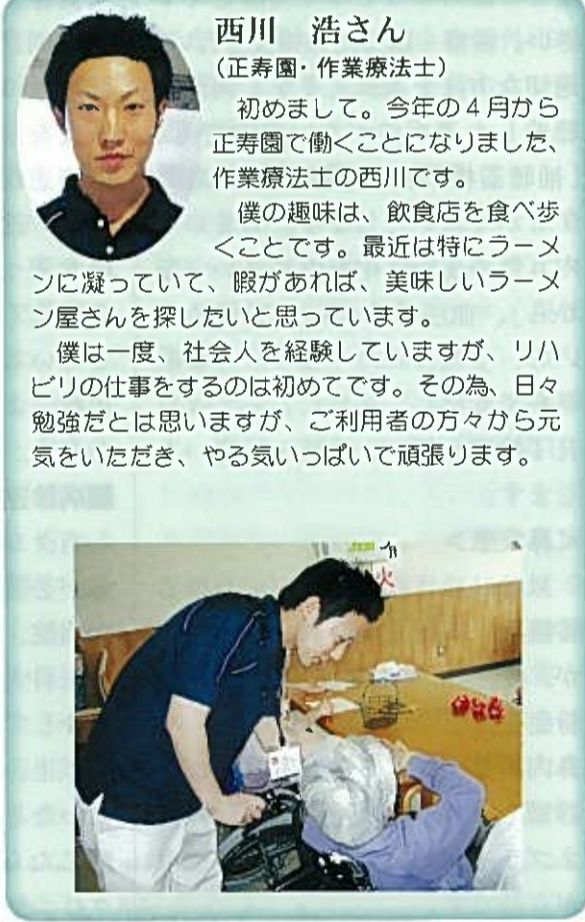 西川　浩さん
（正寿園・作業療法士）
初めまして。今年の４月から
正寿園で働くことになりました、
作業療法士の西川です。
僕の趣味は、飲食店を食べ歩
くことです。最近は特にラーメ
ンに凝っていて、暇があれば、美味しいラーメ
ン屋さんを探したいと思っています。
僕は一度、社会人を経験していますが、リハ
ビリの仕事をするのは初めてです。その為、日々
勉強だとは思いますが、ご利用者の方々から元
気をいただき、やる気いっぱいで頑張ります。
火